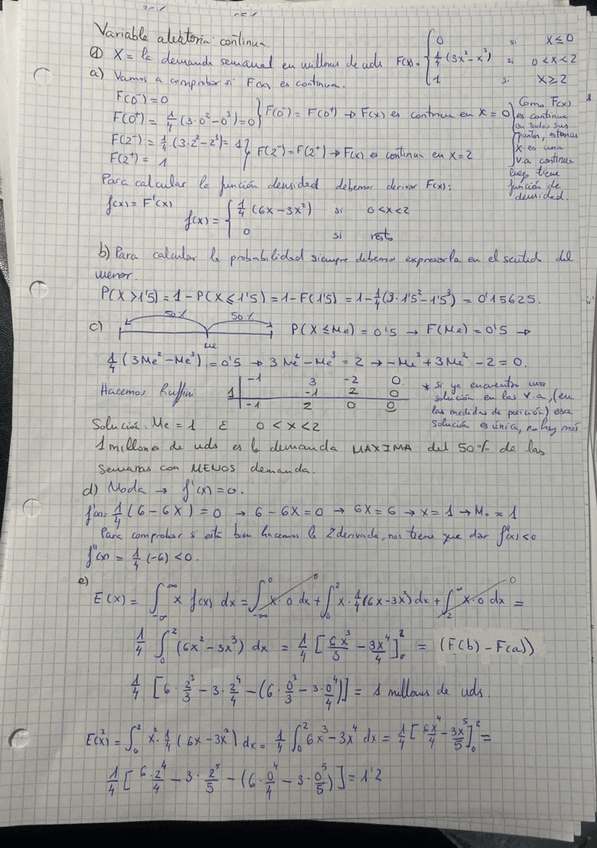 Variable aleatoria continua
① X = la demanda semanal en millones de uds F(x) = { 0 si x ≤ 0
1/4 (3x² - x³) si 0 < x < 2
1 si x ≥ 2
a) Vamos a comprobar si F(x) es continua.
F(0⁻) = 0
F(0⁺) = 1/4 (3·0² - 0³) = 0 } F(0⁻) = F(0⁺) → F(x) es continua en x = 0
F(2⁻) = 1/4 (3·2² - 2³) = 1
F(2⁺) = 1 } F(2⁻) = F(2⁺) → F(x) es continua en x = 2
Como F(x)
es continua
en todos sus
puntos, entonces
X es una
v.a continua
luego tiene
función de
densidad.
Para calcular la función densidad debemos derivar F(x):
f(x) = F'(x)
f(x) = { 1/4 (6x - 3x²) si 0 < x < 2
0 si resto
b) Para calcular la probabilidad siempre debemos expresarla en el sentido del
menor.
P(X > 1'5) = 1 - P(X ≤ 1'5) = 1 - F(1'5) = 1 - 1/4 (3·1'5² - 1'5³) = 0'15625.
c) 50% 50% P(X ≤ Me) = 0'5 → F(Me) = 0'5 →
Me
1/4 (3Me² - Me³) = 0'5 → 3Me² - Me³ = 2 → -Me³ + 3Me² - 2 = 0.
Hacemos Ruffini
-1 3 -2 0
1 -1 2 0
-1 2 0 0
* si ya encuentro una
solución en las v.a, (en
las medidas de posición) esa
solución es única, no hay más
Solución. Me = 1 ∈ 0 < x < 2
1 millone de uds es la demanda MAXIMA del 50% de las
semanas con MENOS demanda.
d) Moda → f'(x) = 0.
f'(x) = 1/4 (6 - 6x) = 0 → 6 - 6x = 0 → 6x = 6 → x = 1 → Mo = 1
Para comprobar si está bien hacemos la 2 derivada, nos tiene que dar f''(x) < 0
f''(x) = 1/4 (-6) < 0.
e)
E(x) = ∫_{-∞}^{∞} x f(x) dx = ∫_{-∞}^{0} x·0 dx + ∫_0^2 x·1/4 (6x - 3x²) dx + ∫_2^∞ x·0 dx =
1/4 ∫_0^2 (6x² - 3x³) dx = 1/4 [6x³/3 - 3x⁴/4]_0^2 = (F(b) - F(a))
1/4 [6·2³/3 - 3·2⁴/4 - (6·0³/3 - 3·0⁴/4)] = 1 millones de uds.
E(x²) = ∫_0^2 x²·1/4 (6x - 3x²) dx = 1/4 ∫_0^2 6x³ - 3x⁴ dx = 1/4 [6x⁴/4 - 3x⁵/5]_0^2 =
1/4 [6·2⁴/4 - 3·2⁵/5 - (6·0⁴/4 - 3·0⁵/5)] = 1'2